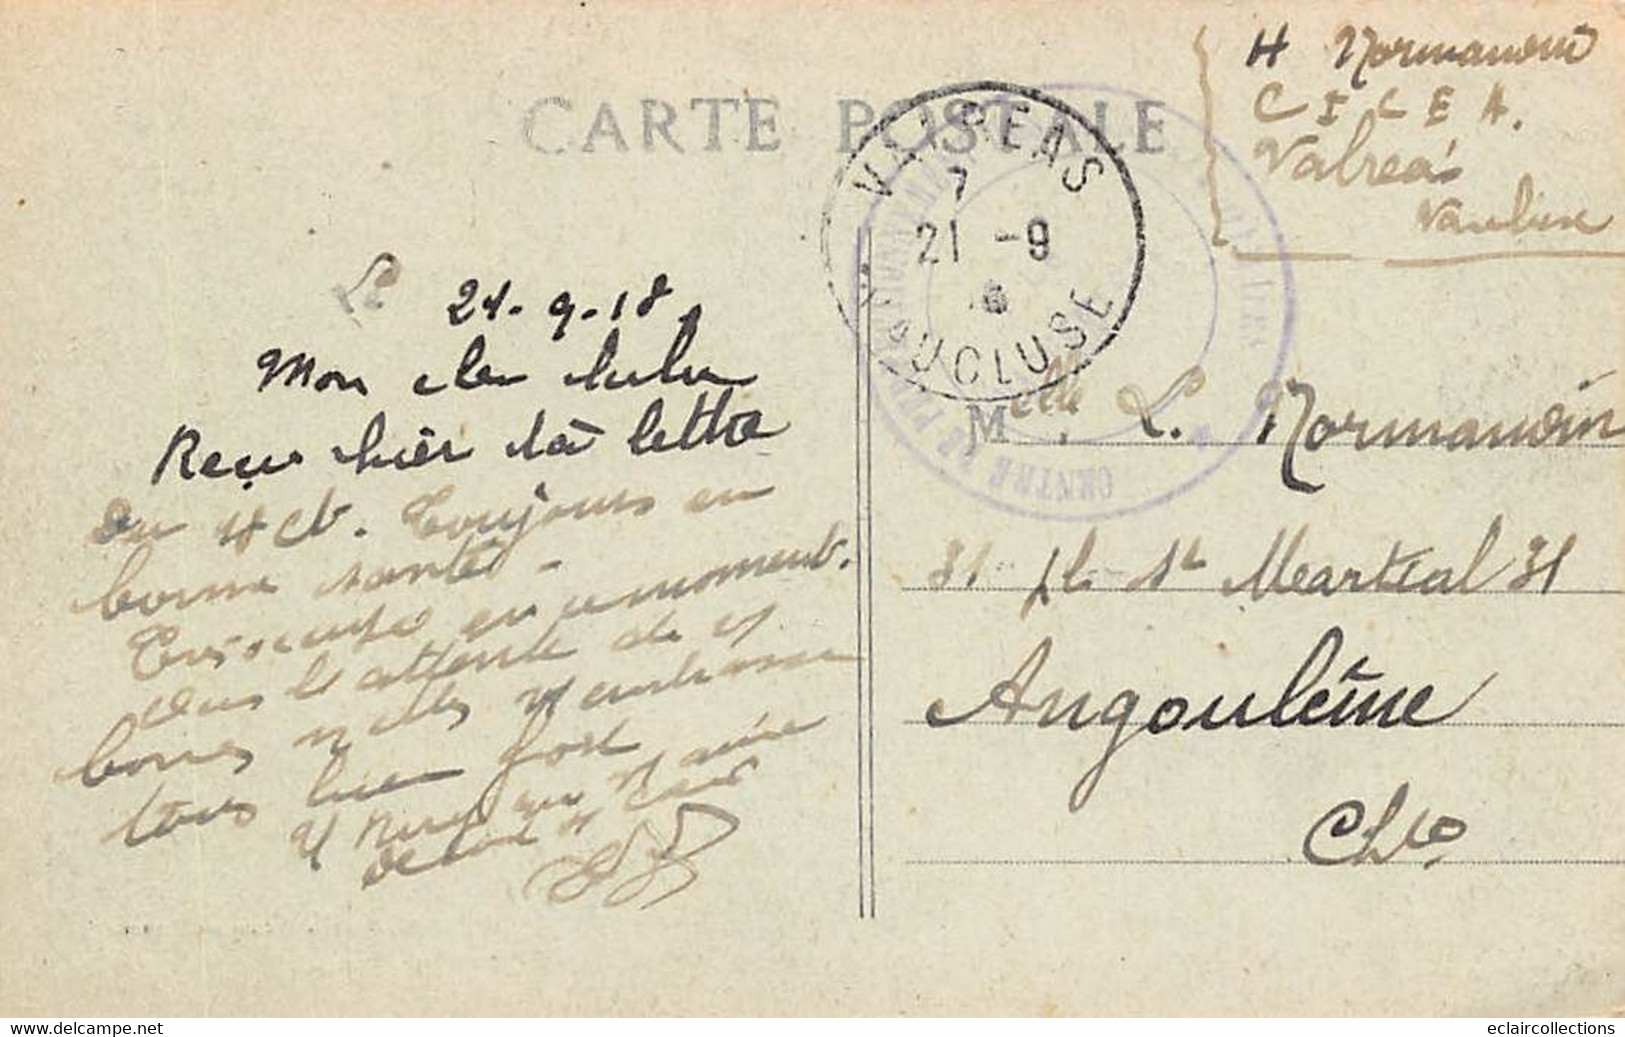 CARTE POSTALE
H Normandin
C I L E A.
Valreas
Vaucluse
VALREAS
7
21 -9
VAUCLUSE
CENTRE DE
21-9-18
Mon cher Lulu
Reçu hier ta lettre
du 18 Ct. Toujours en
bonne santé -
en ce moment.
Dans l'attente de vs
bonnes nlles vs embrasse
tous bien fort
Melle L. Normandin
31 Pl. St Martial 31
Angoulême
Chte
www.delcampe.net
eclaircollections